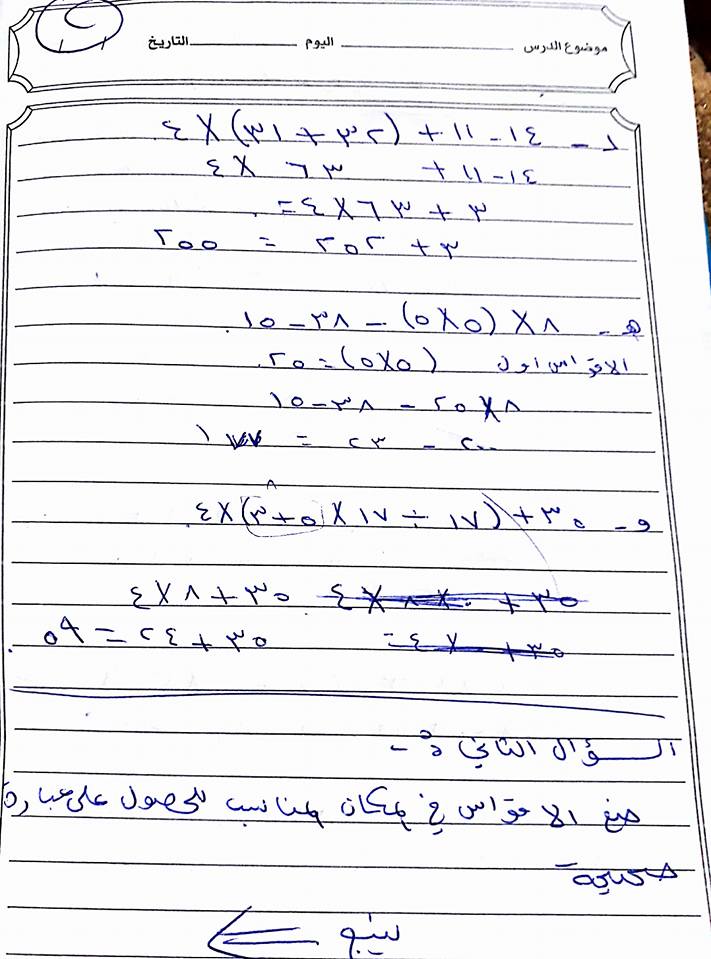 موضوع الدرس اليوم التاريخ
د - ١٤ - ١١ + (٣٢ + ٣١) × ٤
١٤ - ١١ + ٦٣ × ٤
٣ + ٦٣ × ٤ =
٣ + ٢٥٢ = ٢٥٥
هـ - ٨ × (٥×٥) - ٣٨ - ١٥
الاقواس اول (٥×٥) = ٢٥
٨×٢٥ - ٣٨ - ١٥
٢٠٠ - ٢٣ = ١٧٧
٨
و - ٣٥ + (١٧ ÷ ١٧ × ٥+٣) × ٤
٣٥ + ٨ × ٤
٣٥ + ٢٤ = ٥٩
السؤال الثاني :-
ضع الاقواس في المكان المناسب للحصول على عبارة
صحيحة
يتبع